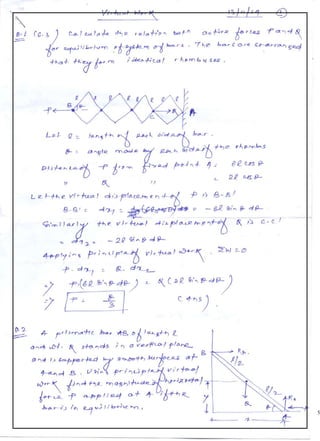 Virtual Work 13/11/19 ①
Q.1 (C.S) Calculate the relation betn active forces P and Q
for equilibrium of system of bars. The bars are so arranged
that they form identical rhombuses.
l l l l l l
P B θ A
C Q
Let l = length of each side of bar.
θ = angle made by each side of the rhombs
Distance of P from fixed point A = 6l cos θ
" Q " = 2l cos θ
Let the virtual displacement of P is B-B'
B-B' = dx₁ = -6l sin θ dθ
Similarly the virtual displacement of Q is C-C'
= dx₂ = -2l sin θ dθ
Applying principle of virtual work, ΣW=0
P.dx₁ = Q.dx₂
=> P(6l sin θ dθ) = Q(2l sin θ dθ)
=> P = Q/3 (Ans)
Q.2. A prismatic bar AB of length l
and wt. Q stands in a vertical plane
and is supported by smooth surfaces at
A and B. Using principle of virtual
work find the magnitude of horizontal
force P applied at A if the
bar is in equilibrium.
B RB
l/2
l/2
y Q RA
A P
x